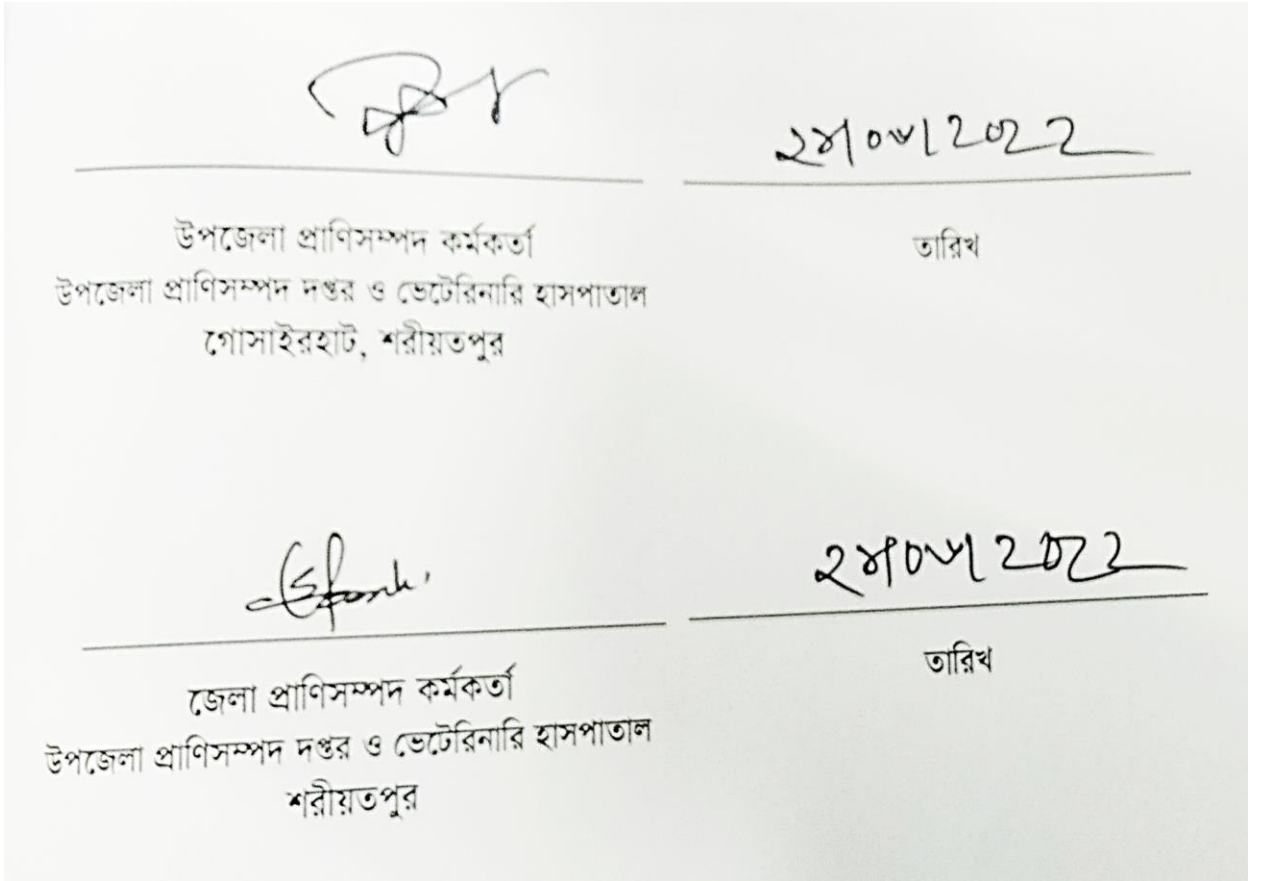 ২৪/০৬/২০২২
উপজেলা প্রাণিসম্পদ কর্মকর্তা
তারিখ
উপজেলা প্রাণিসম্পদ দপ্তর ও ভেটেরিনারি হাসপাতাল
গোসাইরহাট, শরীয়তপুর
২৪/০৬/২০২২
জেলা প্রাণিসম্পদ কর্মকর্তা
তারিখ
উপজেলা প্রাণিসম্পদ দপ্তর ও ভেটেরিনারি হাসপাতাল
শরীয়তপুর